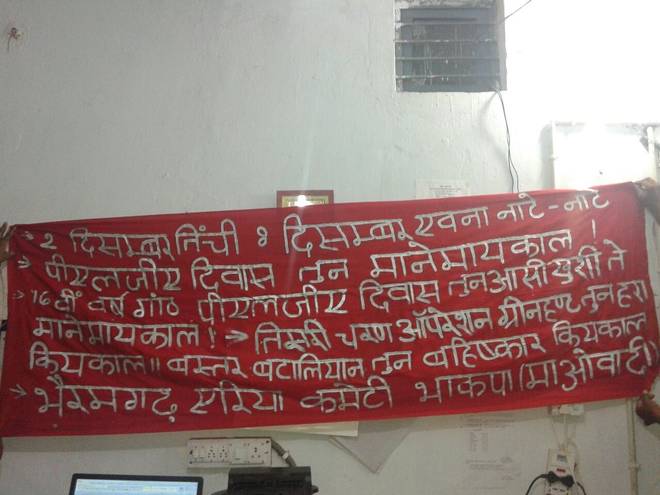 → २ दिसम्बर निंची ८ दिसम्बर रवना नाटे-नाट
→ पीएलजीए दिवास तुन मानेमायकाल!
→ 16 वी वर्ष गांठ पीएलजीए दिवस तुन आसीखुसी ते
मानेमायकाल! → तिसरी चरण ऑपरेशन ग्रीनहण्ट तुन हरा
कियकाल॥ बस्तर बटालियान तुन बहिष्कार कियकाल
→ भैरमगढ़ एरिया कमेटी भाकपा (माओवादी)